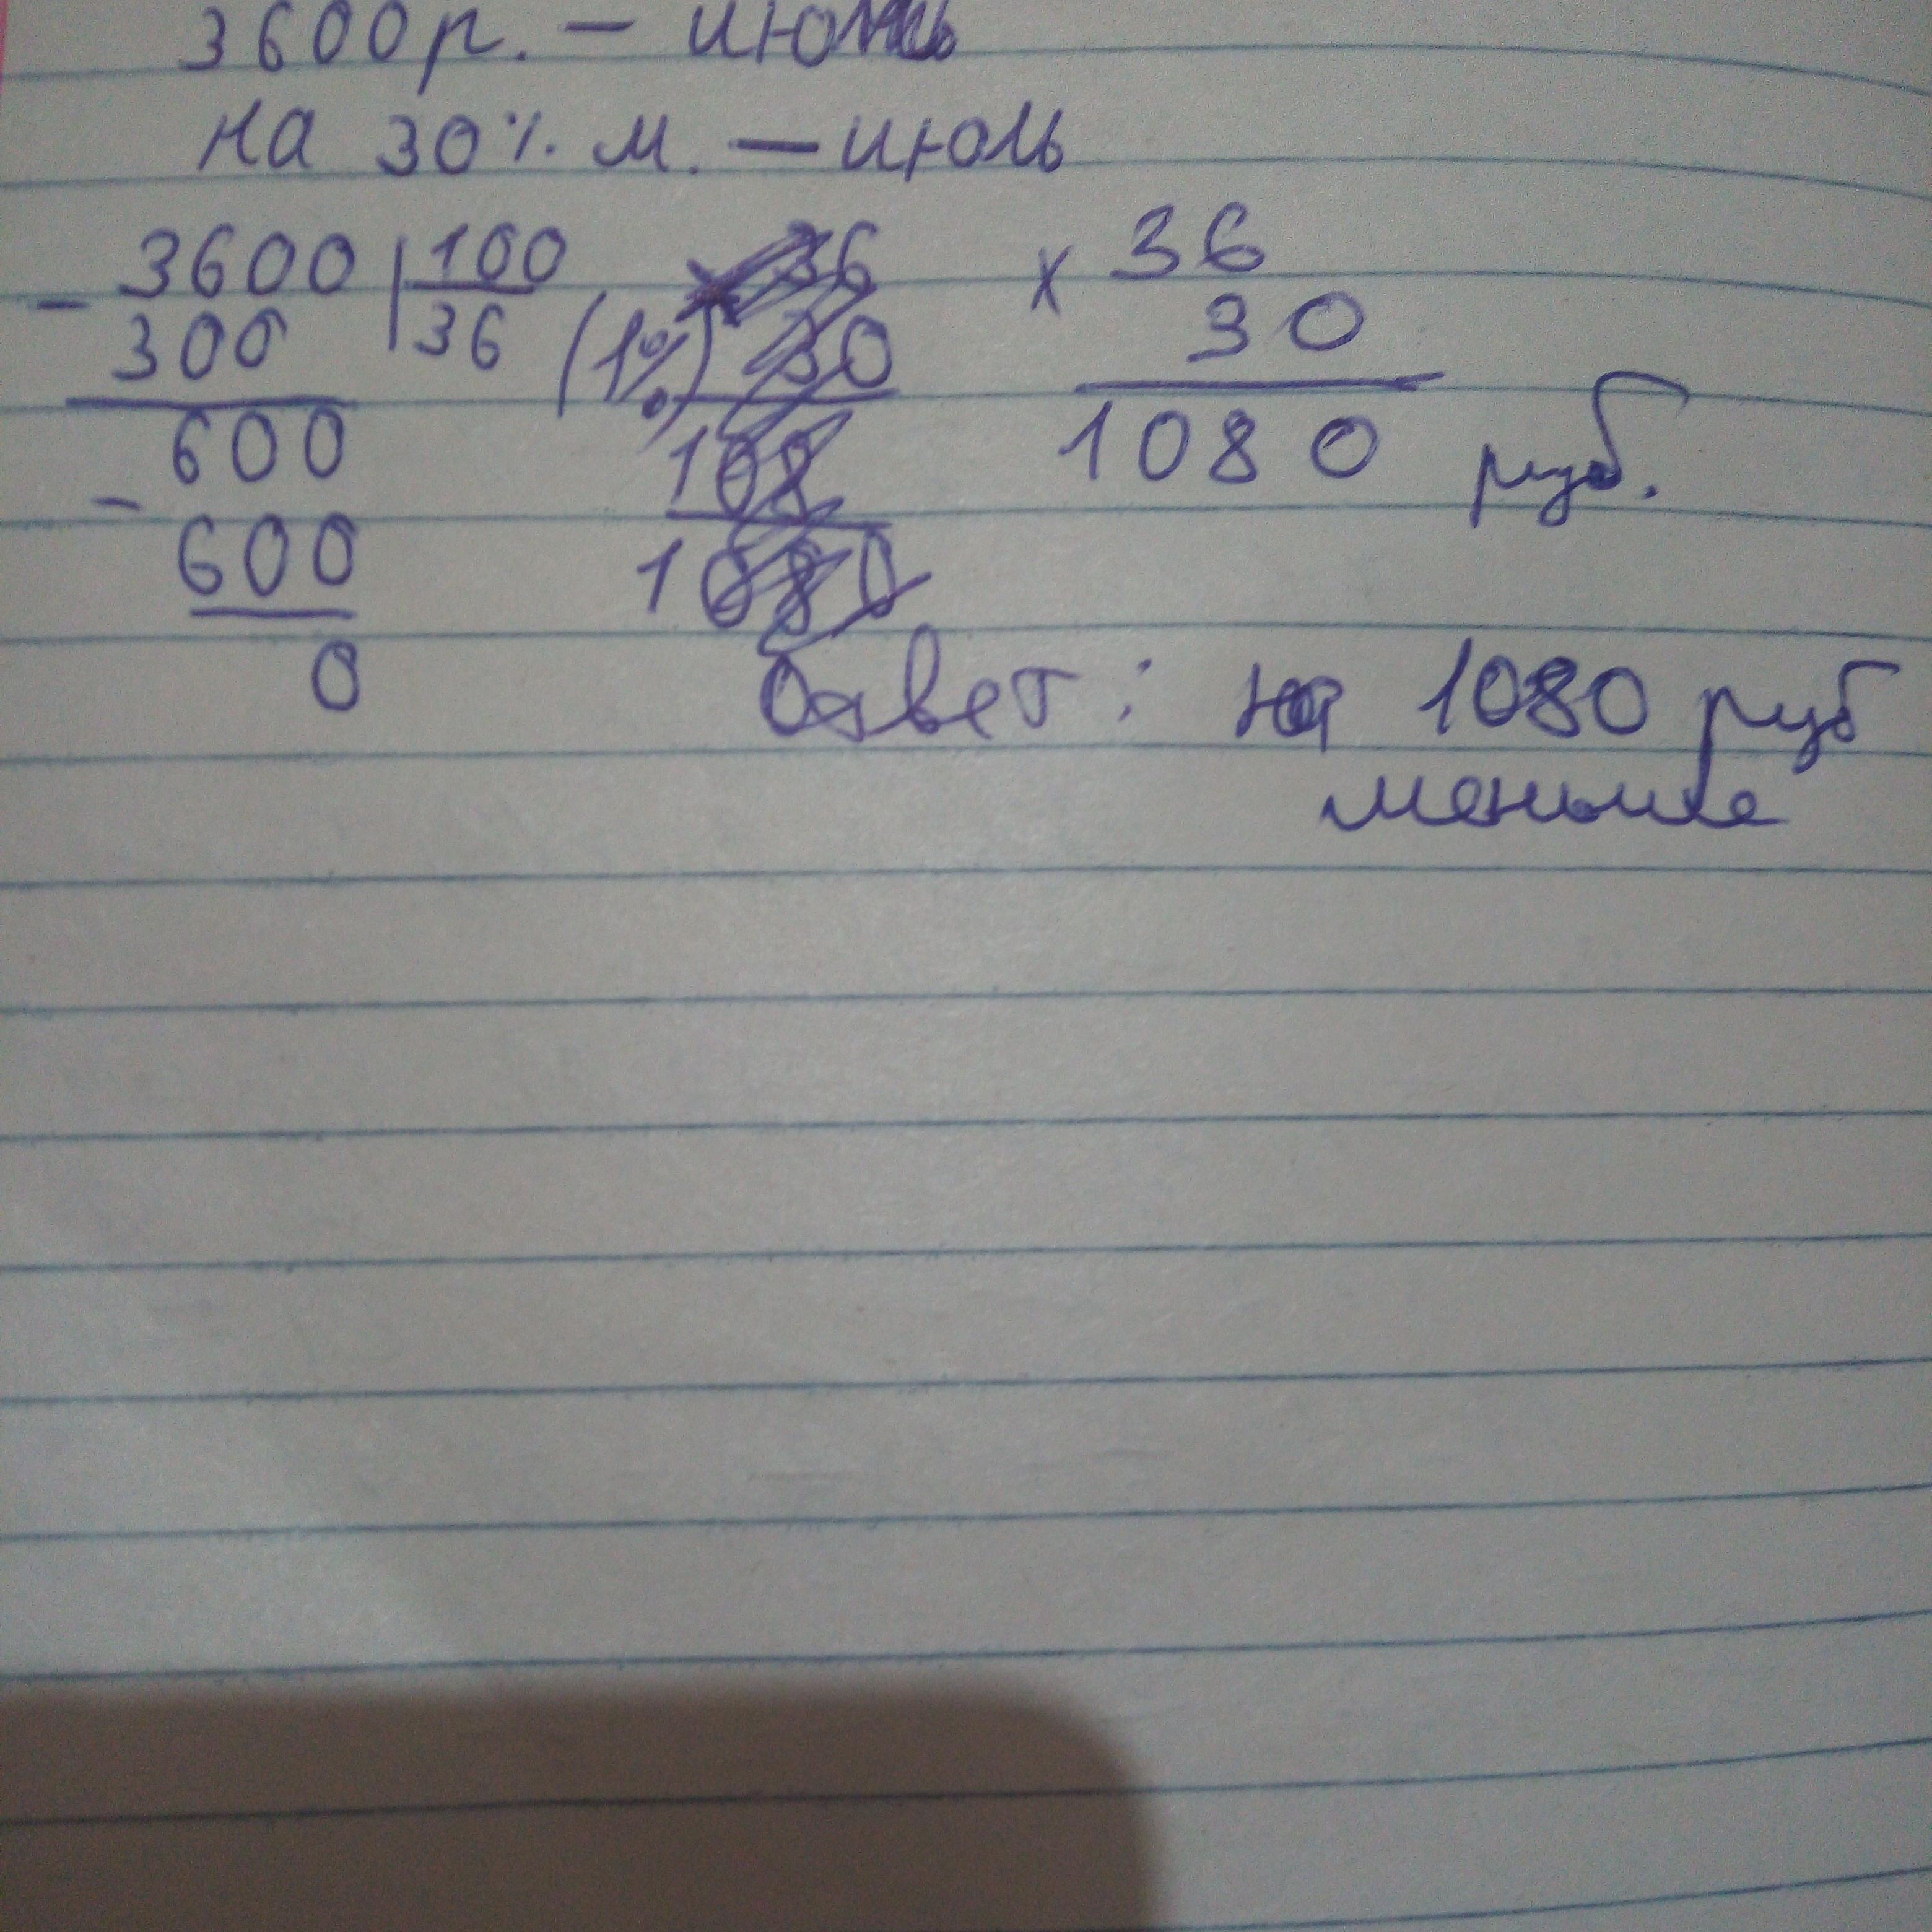 3600 р. – июнь
на 30% м. – июль
- 3600 | 100
300 36 (1%)
600
- 600
0
× 36
30
108
1080
× 36
30
1080 руб.
Ответ: на 1080 руб
меньше